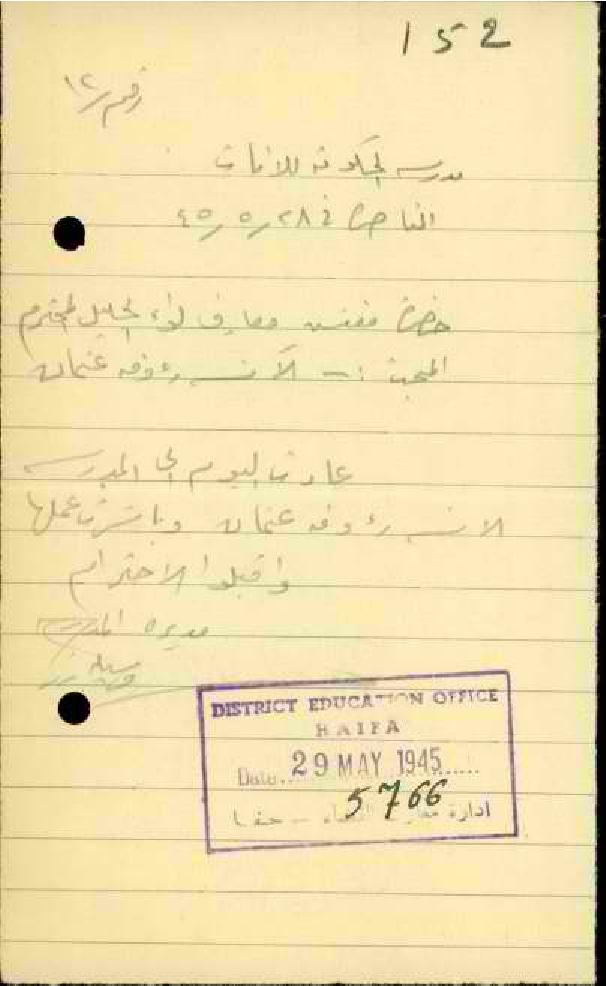 152
رقم ١٢
مدرسة الحكومة للاناث
الناصرة في ٢٨/٥/٤٥
حضرة مفتش معارف لواء الجليل المحترم
المبحث :- الآنسة رؤوفه عثمان
عادت اليوم الى المدرسه
الانسه رؤوفه عثمان وباشرت عملها
واقبلوا الاحترام
مديرة المدرسة
DISTRICT EDUCATION OFFICE
HAIFA
Date... 29 MAY 1945......
5766
ادارة معارف اللواء - حيفا